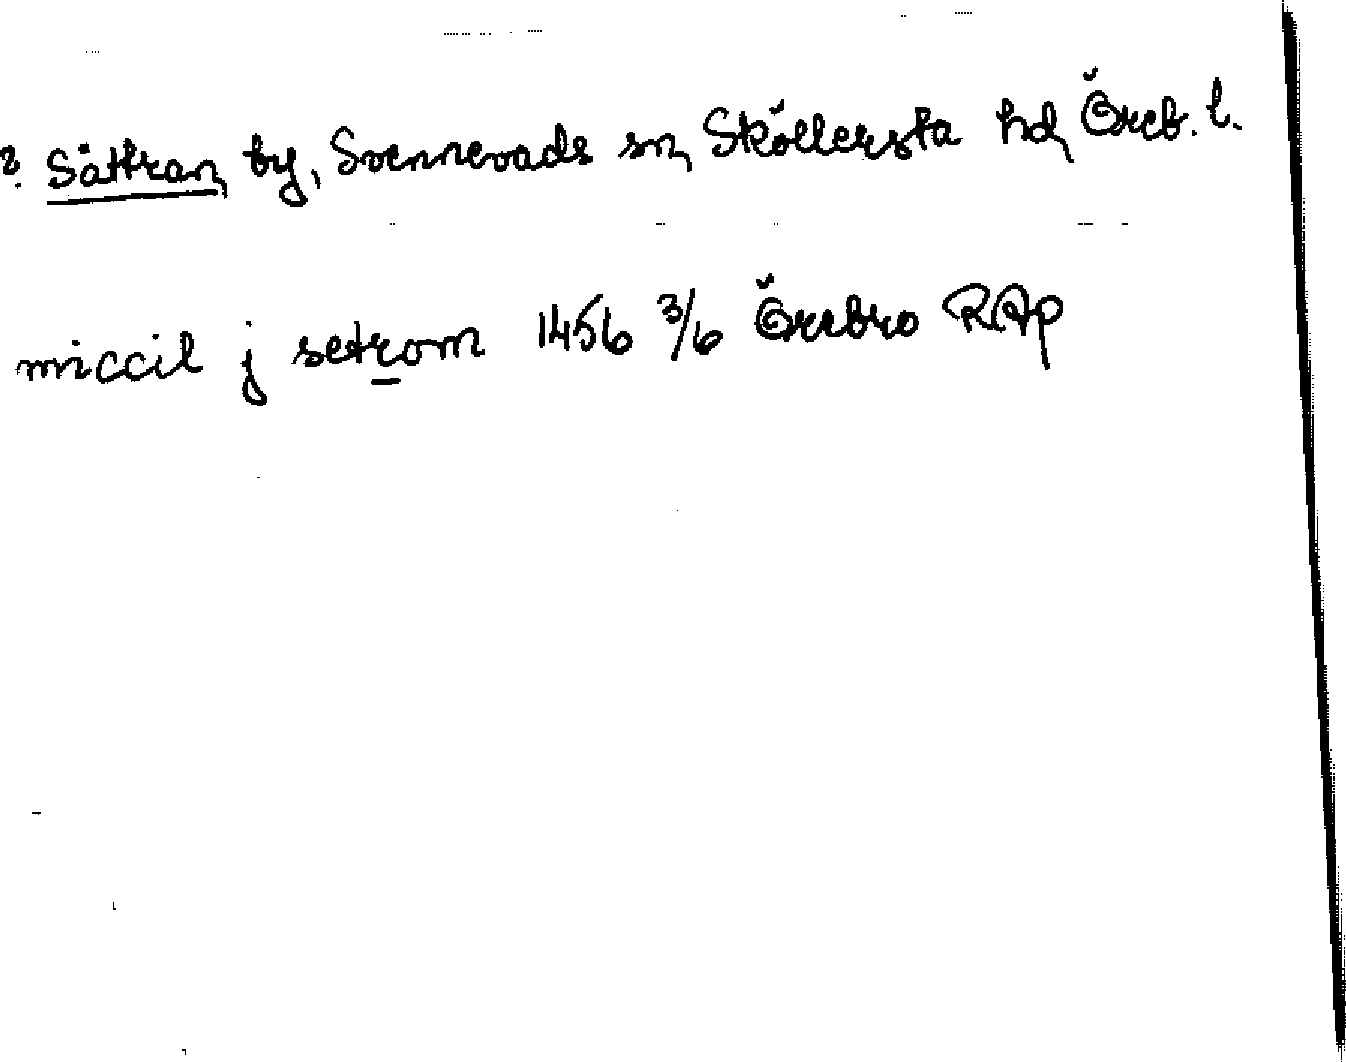 2. Sättran by, Svennevads sn, Sköllersta hd, Öreb. l.
miccil j setrom 1456 3/6 Örebro RAp